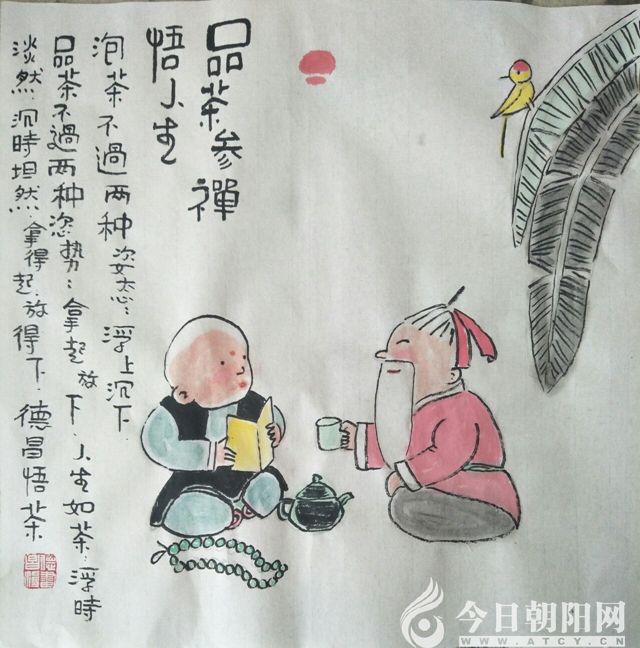 品茶参禪
悟人生
泡茶不過两种姿态：浮上沉下.
品茶不過两种姿势：拿起放下.人生如茶：浮時
淡然.沉時坦然.拿得起.放得下.德昌悟茶
今日朝阳网
WWW.ATCY.CN